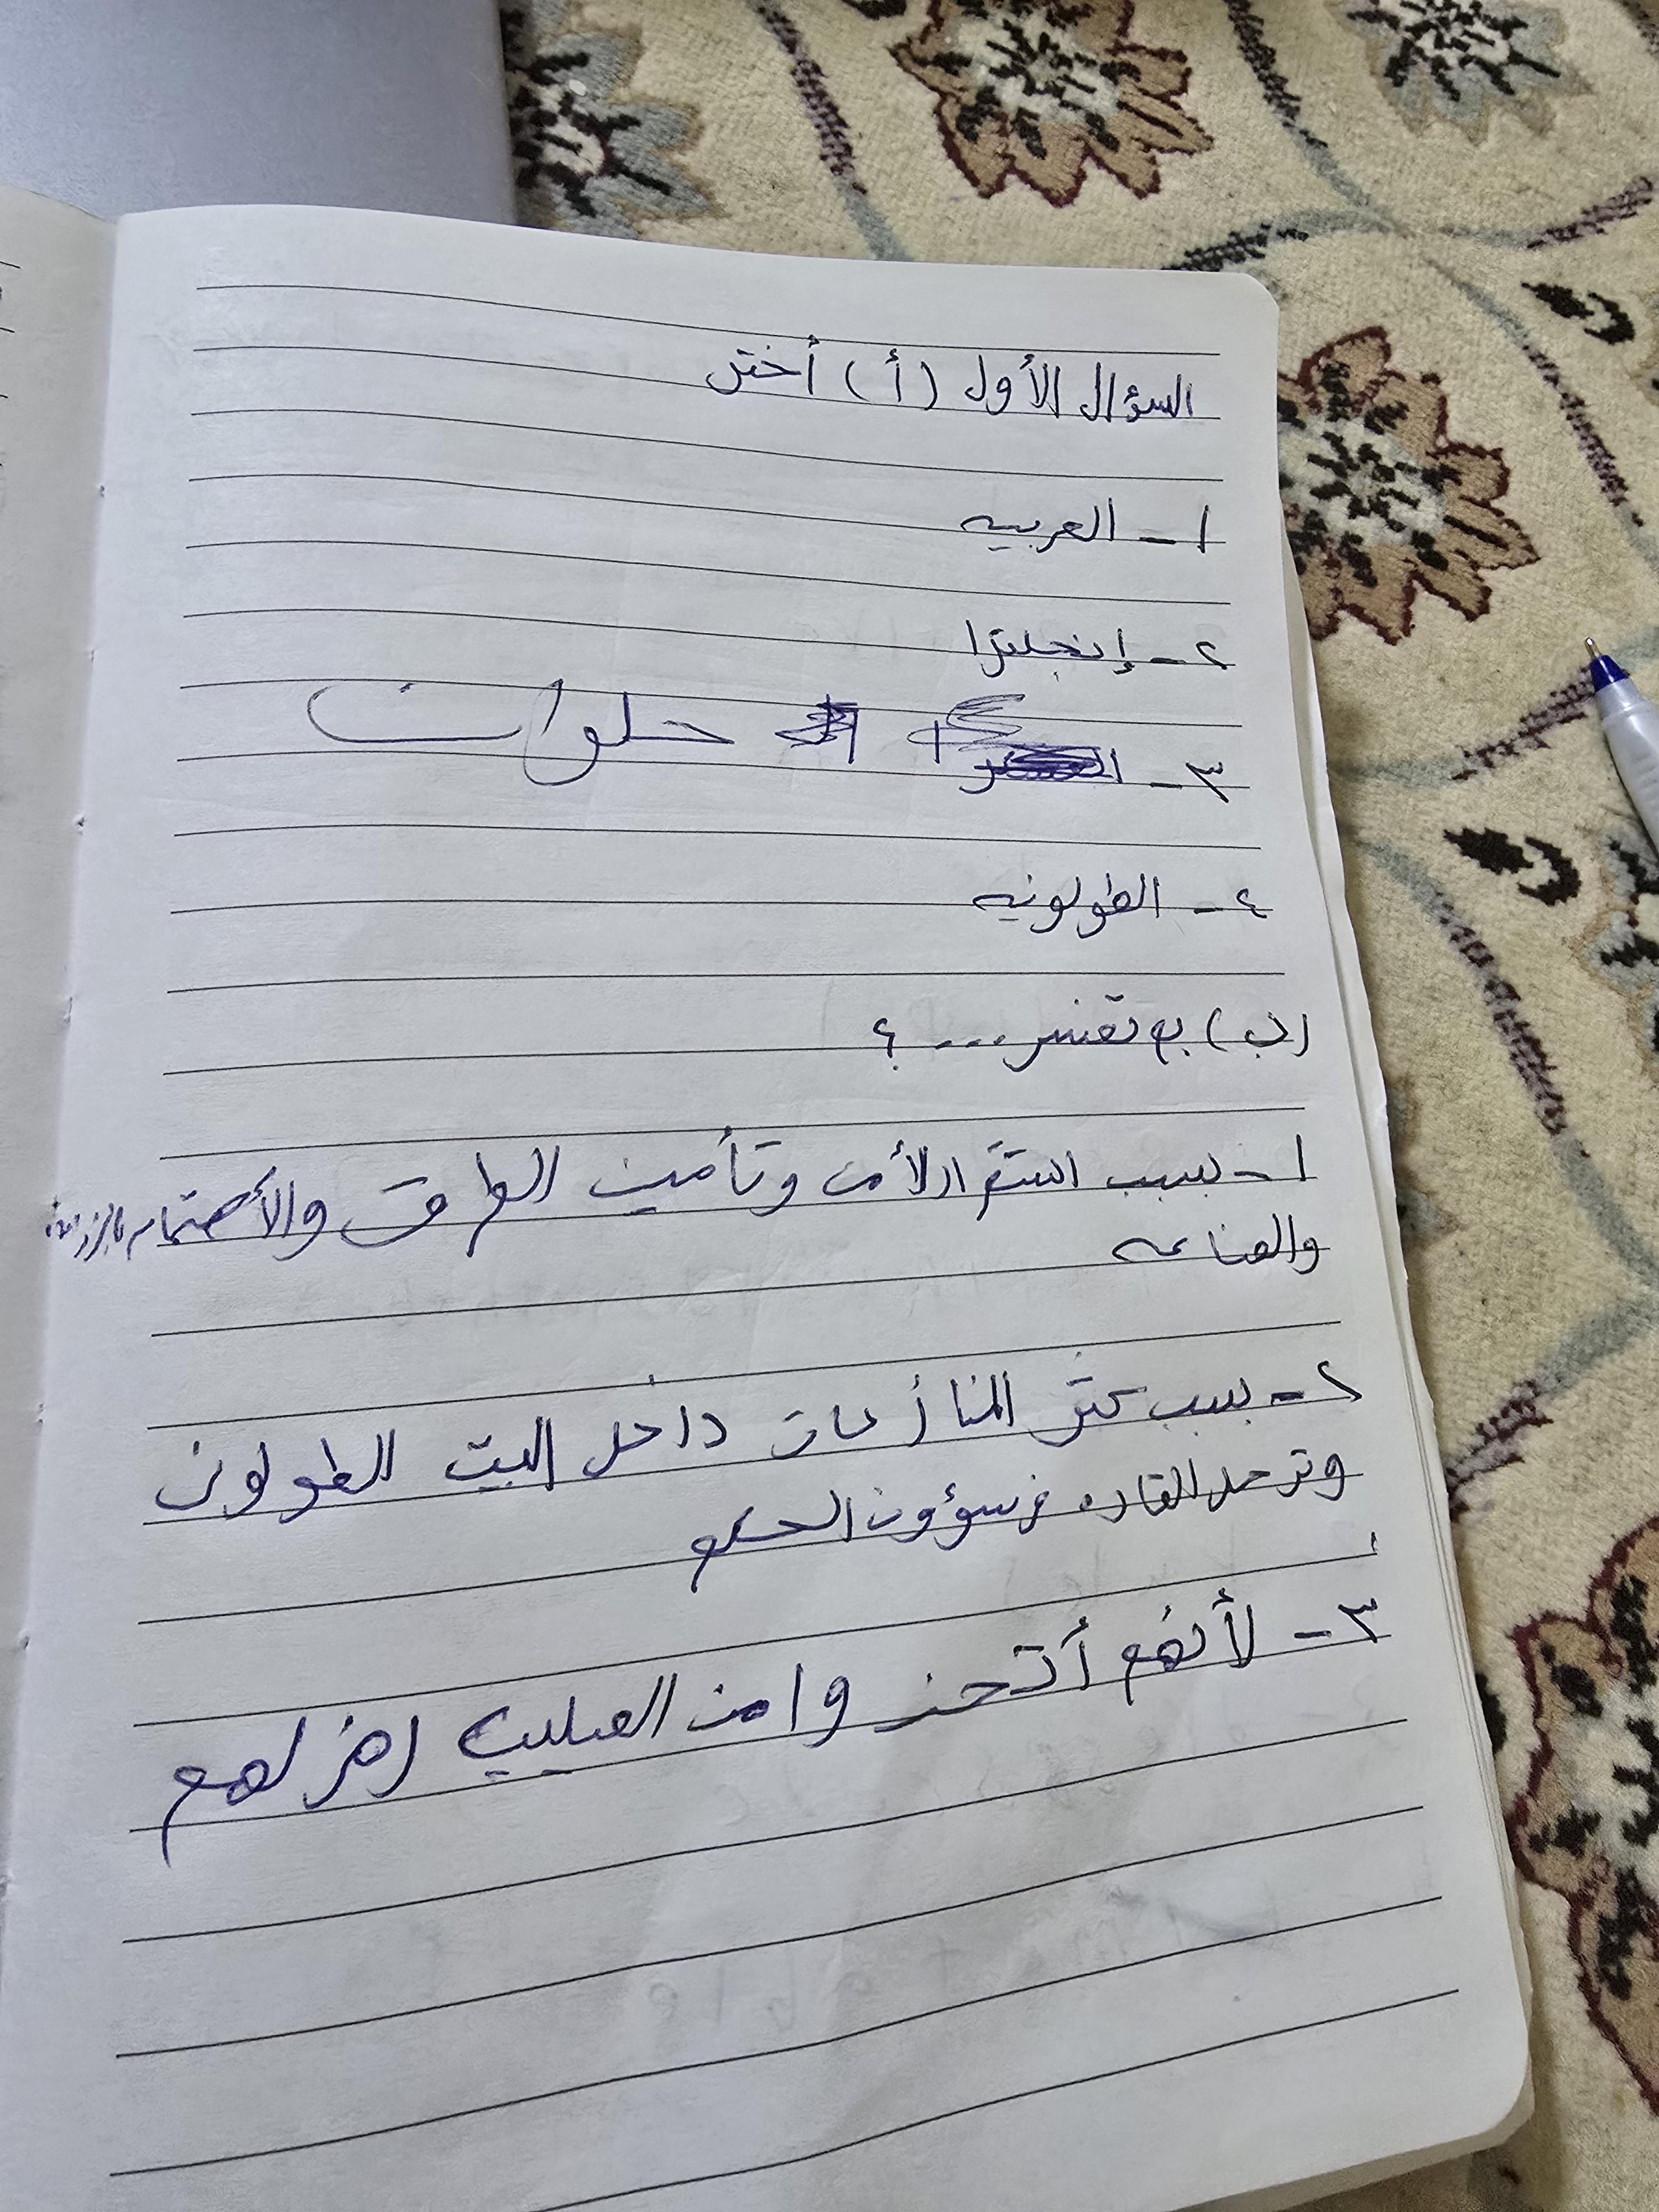 السؤال الأول (أ) أختر
١- العربيه
٢- إنجلترا
٣- حلوان
٤- الطولونيه
(ب) بم تفسر ... ؟
١- بسبب استقرار الأمن وتأمين الطرق والأهتمام بالزراعه
والصناعه
٢- بسبب كثر المنازعات داخل البيت الطولون
وتدخل القاده في شؤون الحكم
٣- لأنهم أتخذوا من الصليب رمز لهم